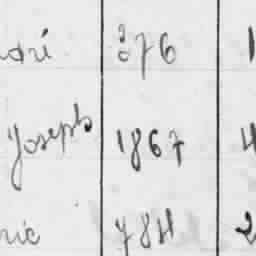 ndré 876 1
Joseph 1867 4
ric 784 2